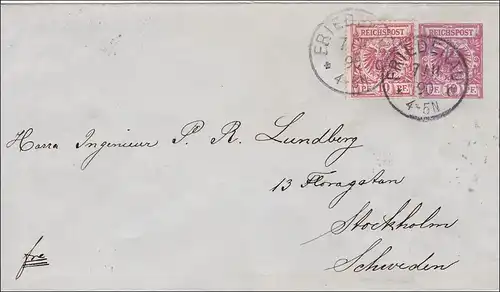 REICHSPOST REICHSPOST
FRIEDENAU
4-5N 4-5N
10 PF 10
Herrn Ingenieur P. R. Lundberg
13 Floragatan
Stockholm
Schweden
fre